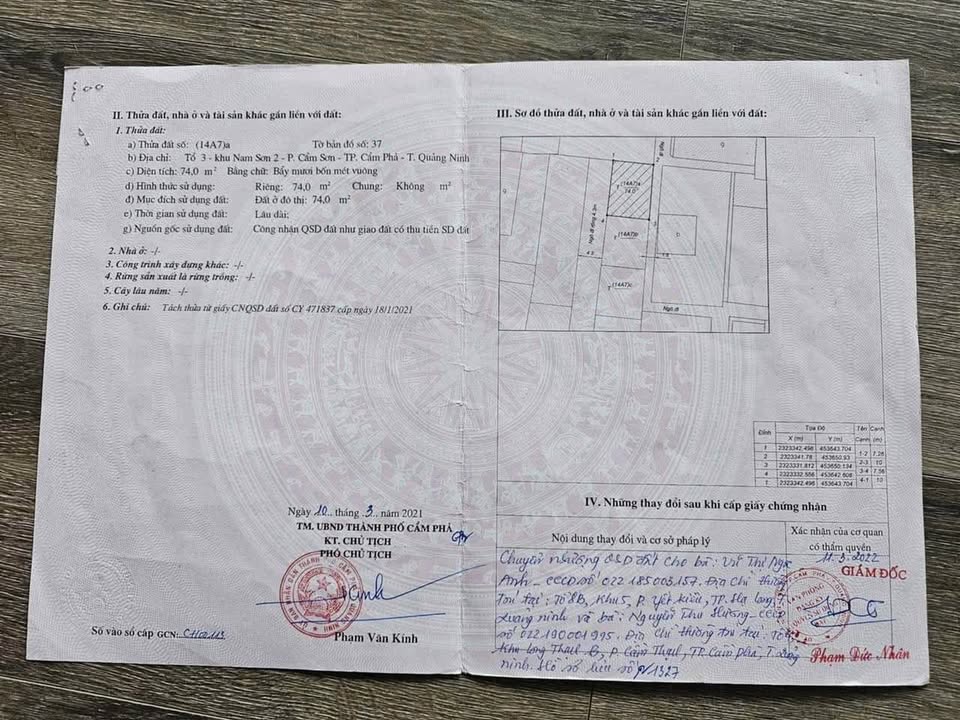 II. Thửa đất, nhà ở và tài sản khác gắn liền với đất:
1. Thửa đất:
a) Thửa đất số: (14A7)a Tờ bản đồ số: 37
b) Địa chỉ: Tổ 3 - khu Nam Sơn 2 - P. Cẩm Sơn - TP. Cẩm Phả - T. Quảng Ninh
c) Diện tích: 74,0 m² Bằng chữ: Bẩy mươi bốn mét vuông
d) Hình thức sử dụng: Riêng: 74,0 m² Chung: Không m²
đ) Mục đích sử dụng đất: Đất ở đô thị: 74,0 m²
e) Thời gian sử dụng đất: Lâu dài:
g) Nguồn gốc sử dụng: Công nhận QSD đất như giao đất có thu tiền SD đất
2. Nhà ở: -/-
3. Công trình xây dựng khác: -/-
4. Rừng sản xuất là rừng trồng: -/-
5. Cây lâu năm: -/-
6. Ghi chú: Tách thửa từ giấy CNQSD đất số CY 471837 cấp ngày 18/1/2021
Ngày 10 tháng 3 năm 2021
TM. UBND THÀNH PHỐ CẨM PHẢ
KT. CHỦ TỊCH
PHÓ CHỦ TỊCH
Phạm Văn Kính
Số vào sổ cấp GCN:
III. Sơ đồ thửa đất, nhà ở và tài sản khác gắn liền với đất:
1
2
(14A7)a
74.0
Ngõ đi
4
3
Ngõ đi đông 4.3m
(14A7)b
4.3
1.6
(14A7)c
Ngõ đi
Đỉnh Tọa Độ Tên Cạnh
X (m) Y (m) Cạnh (m)
1 2323342.498 453643.704
1-2 7.28
2 2323341.78 453650.93
2-3 10
3 2323331.812 453650.134
3-4 7.56
4 2323332.556 453642.608
4-1 10
1 2323342.498 453643.704
IV. Những thay đổi sau khi cấp giấy chứng nhận
Nội dung thay đổi và cơ sở pháp lý
Xác nhận của cơ quan
có thẩm quyền
11.3.2022
GIÁM ĐỐC
Chuyển nhượng QSD đất cho bà: Vũ Thị Ngọc
Anh - CCCD số 022185003157. Địa chỉ thường
trú tại: Tổ 8B, Khu 5, P. Yết Kiêu, TP. Hạ Long, T.
Quảng Ninh và bà: Nguyễn Thu Hương - CCCD
số 022190001995. Địa chỉ thường trú tại: Tổ
Khu Long Thạch B, P. Cẩm Thạch, TP. Cẩm Phả, T. Quảng
Ninh. Hồ sơ lưu số 1327
Phạm Đức Nhân